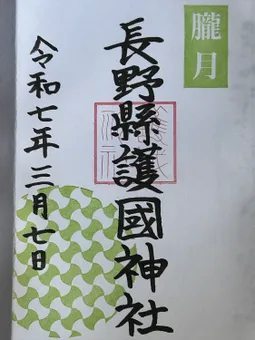 朧月
長野縣護國神社
令和七年三月七日